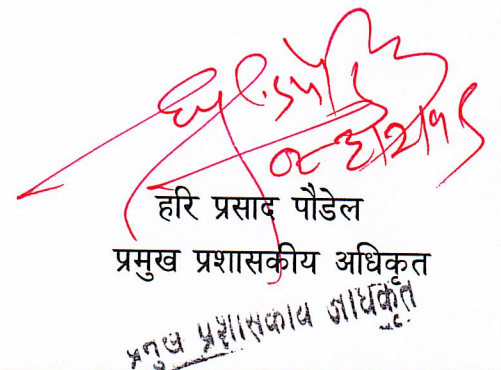 हरि प्रसाद पौडेल
प्रमुख प्रशासकीय अधिकृत
प्रमुख प्रशासकीय अधिकृत